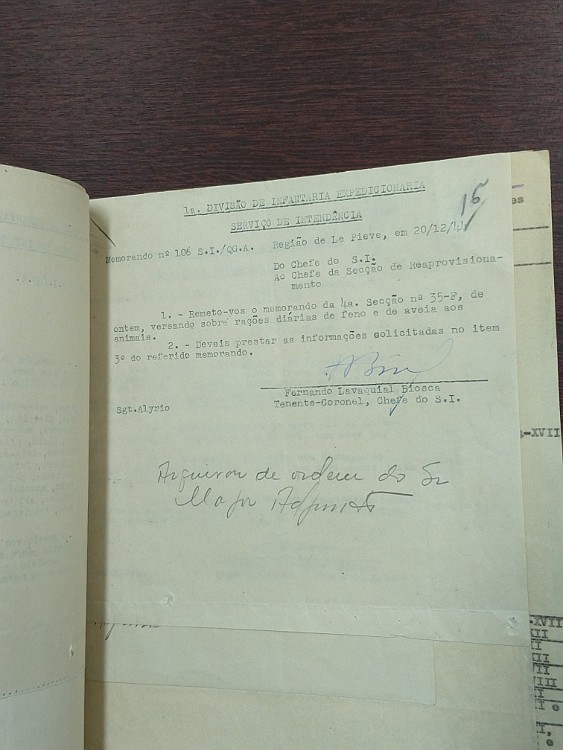 1a. DIVISÃO DE INFANTARIA EXPEDICIONARIA
SERVIÇO DE INTENDÊNCIA
16
Memorando nº 106 S.I./QG.A.
Região de Le Pieve, em 20/12/44
Do Chefe do S.I.
Ao Chefe da Secção de Reaprovisiona-
mento
1. - Remeto-vos o memorando da 4a. Secção nº 35-F, de
ontem, versando sobre rações diárias de feno e de aveia aos
animais.
2. - Deveis prestar as informações solicitadas no item
3º do referido memorando.
Fernando Lavaquial Biosca
Tenente-Coronel, Chefe do S.I.
Sgt.Alyrio
de ordem do Sr
Major Adjunto
es
-XVII
-XVII
XII
II
XII
VIII